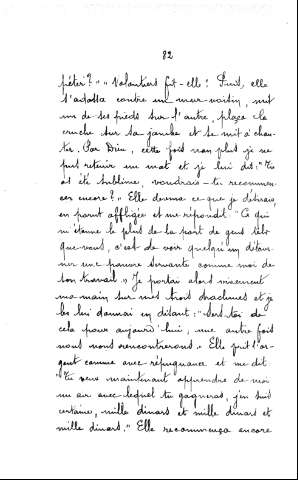 82
péter ? » « Volontiers fit-elle ! Puis, elle
s'adossa contre un mur voisin, mit
un de ses pieds sur l'autre, plaça la
cruche sur sa jambe et se mit à chan-
ter. Par Dieu, cette fois non plus je ne
pus retenir un mot et je lui dis : "Tu
as été sublime, voudrais-tu recommen-
cer encore ? » Elle devina ce que je désirais,
en parut affligée et me répondit "Ce qui
m'étonne le plus de la part de gens tels
que vous, c'est de voir quelqu'un détour-
ner une pauvre servante comme moi de
son travail. » Je portai alors vivement
ma main sur mes trois drachmes et je
les lui donnai en disant : "Sers-toi de
cela pour aujourd'hui, une autre fois
nous nous rencontrerons. » Elle prit l'ar-
gent comme avec répugnance et me dit :
"Tu veux maintenant apprendre de moi
un air avec lequel tu gagneras, j'en suis
certaine, mille dinars et mille dinars et
mille dinars." Elle recommença encore